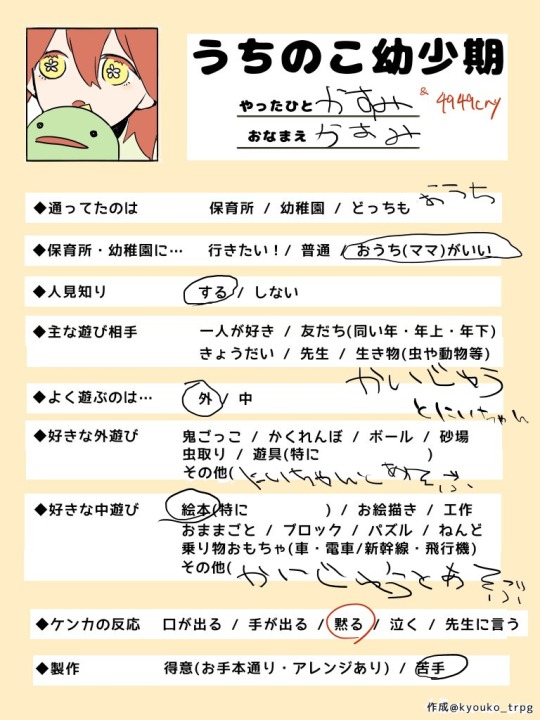 うちのこ幼少期
やったひと かすみ & 4949cry
おなまえ かすみ
◆通ってたのは 保育所 / 幼稚園 / どっちも おうち
◆保育所・幼稚園に… 行きたい! / 普通 / おうち(ママ)がいい
◆人見知り する / しない
◆主な遊び相手 一人が好き / 友だち(同い年・年上・年下)
きょうだい / 先生 / 生き物(虫や動物等)
かいじゅう
とにいちゃん
◆よく遊ぶのは… 外 / 中
◆好きな外遊び 鬼ごっこ / かくれんぼ / ボール / 砂場
虫取り / 遊具(特に )
その他(にいちゃんとあそぶ
◆好きな中遊び 絵本(特に ) / お絵描き / 工作
おままごと / ブロック / パズル / ねんど
乗り物おもちゃ(車・電車/新幹線・飛行機)
その他(かいじゅうとあそぶ)
◆ケンカの反応 口が出る / 手が出る / 黙る / 泣く / 先生に言う
◆製作 得意(お手本通り・アレンジあり) / 苦手
作成@kyouko_trpg